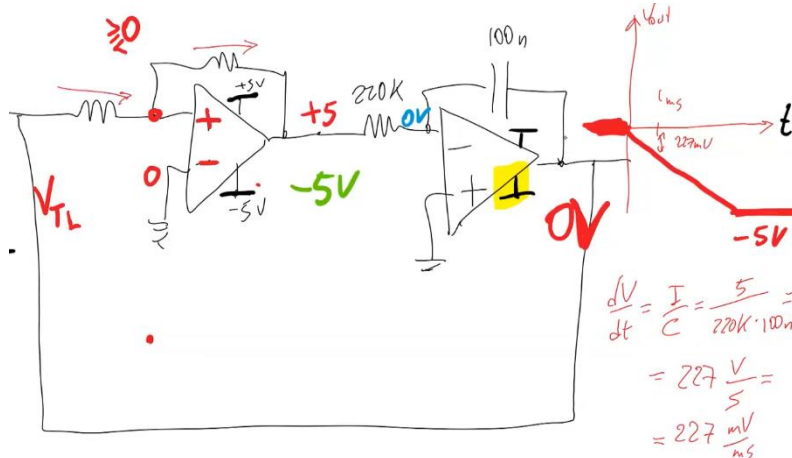 ≥0
+5V
+
-
-5V
0
V_TL
+5
-5V
220K
0V
100n
-
+
0V
Vout
1ms
t
227mV
-5V
dV/dt = I/C = 5/220K·100n =
= 227 V/S =
= 227 mV/ms